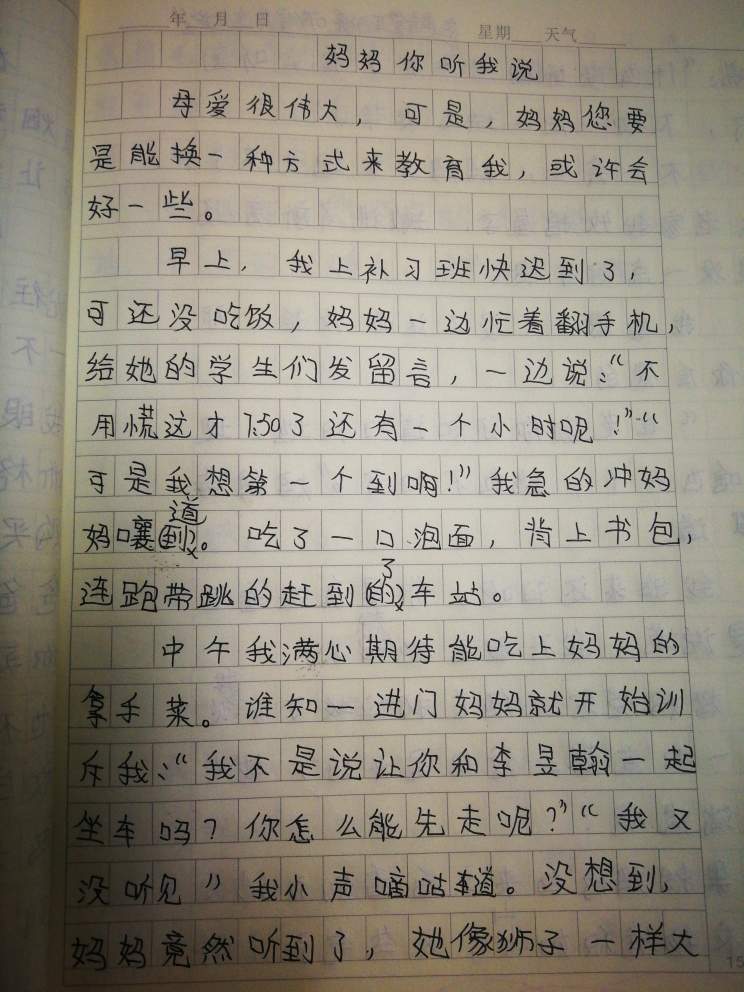 年 月 日 星期 天气
妈妈你听我说
母爱很伟大，可是，妈妈您要
是能换一种方式来教育我，或许会
好一些。
早上，我上补习班快迟到了，
可还没吃饭，妈妈一边忙着翻手机，
给她的学生们发留言，一边说：“不
用慌这才7:50了还有一个小时呢！”“
可是我想第一个到啊！”我急的冲妈
妈嚷道。吃了一口泡面，背上书包，
连跑带跳的赶到了车站。
中午我满心期待能吃上妈妈的
拿手菜。谁知一进门妈妈就开始训
斥我：“我不是说让你和李昱翰一起
坐车吗？你怎么能先走呢？”“我又
没听见”我小声嘀咕道。没想到，
妈妈竟然听到了，她像狮子一样大
15